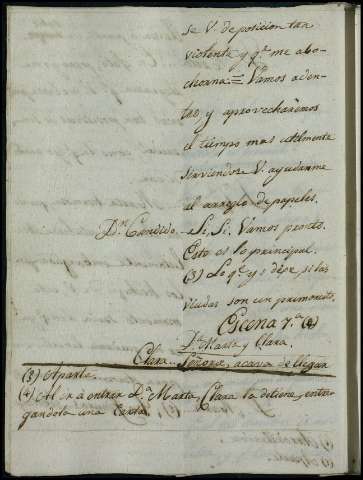 se V. de posicion tan
violenta y q.e me abo-
chorna = Vamos aden-
tro, y aprovecharémos
el tiempo mas utilmente
sirviendose V. ayudarme
al arreglo de papeles.
D.n Candido. Si, Si. Vamos pronto.
Esto es lo principal.
(3) Lo q.e yo dije, si las
viudas son un primor etc.
Escena 7.a (4)
D.a Marta y Clara.
Clara. Señora, acava de llegar
(3) Aparte.
(4) Al ir á entrar D.a Marta, Clara la detiene, entre-
gandola una Carta.